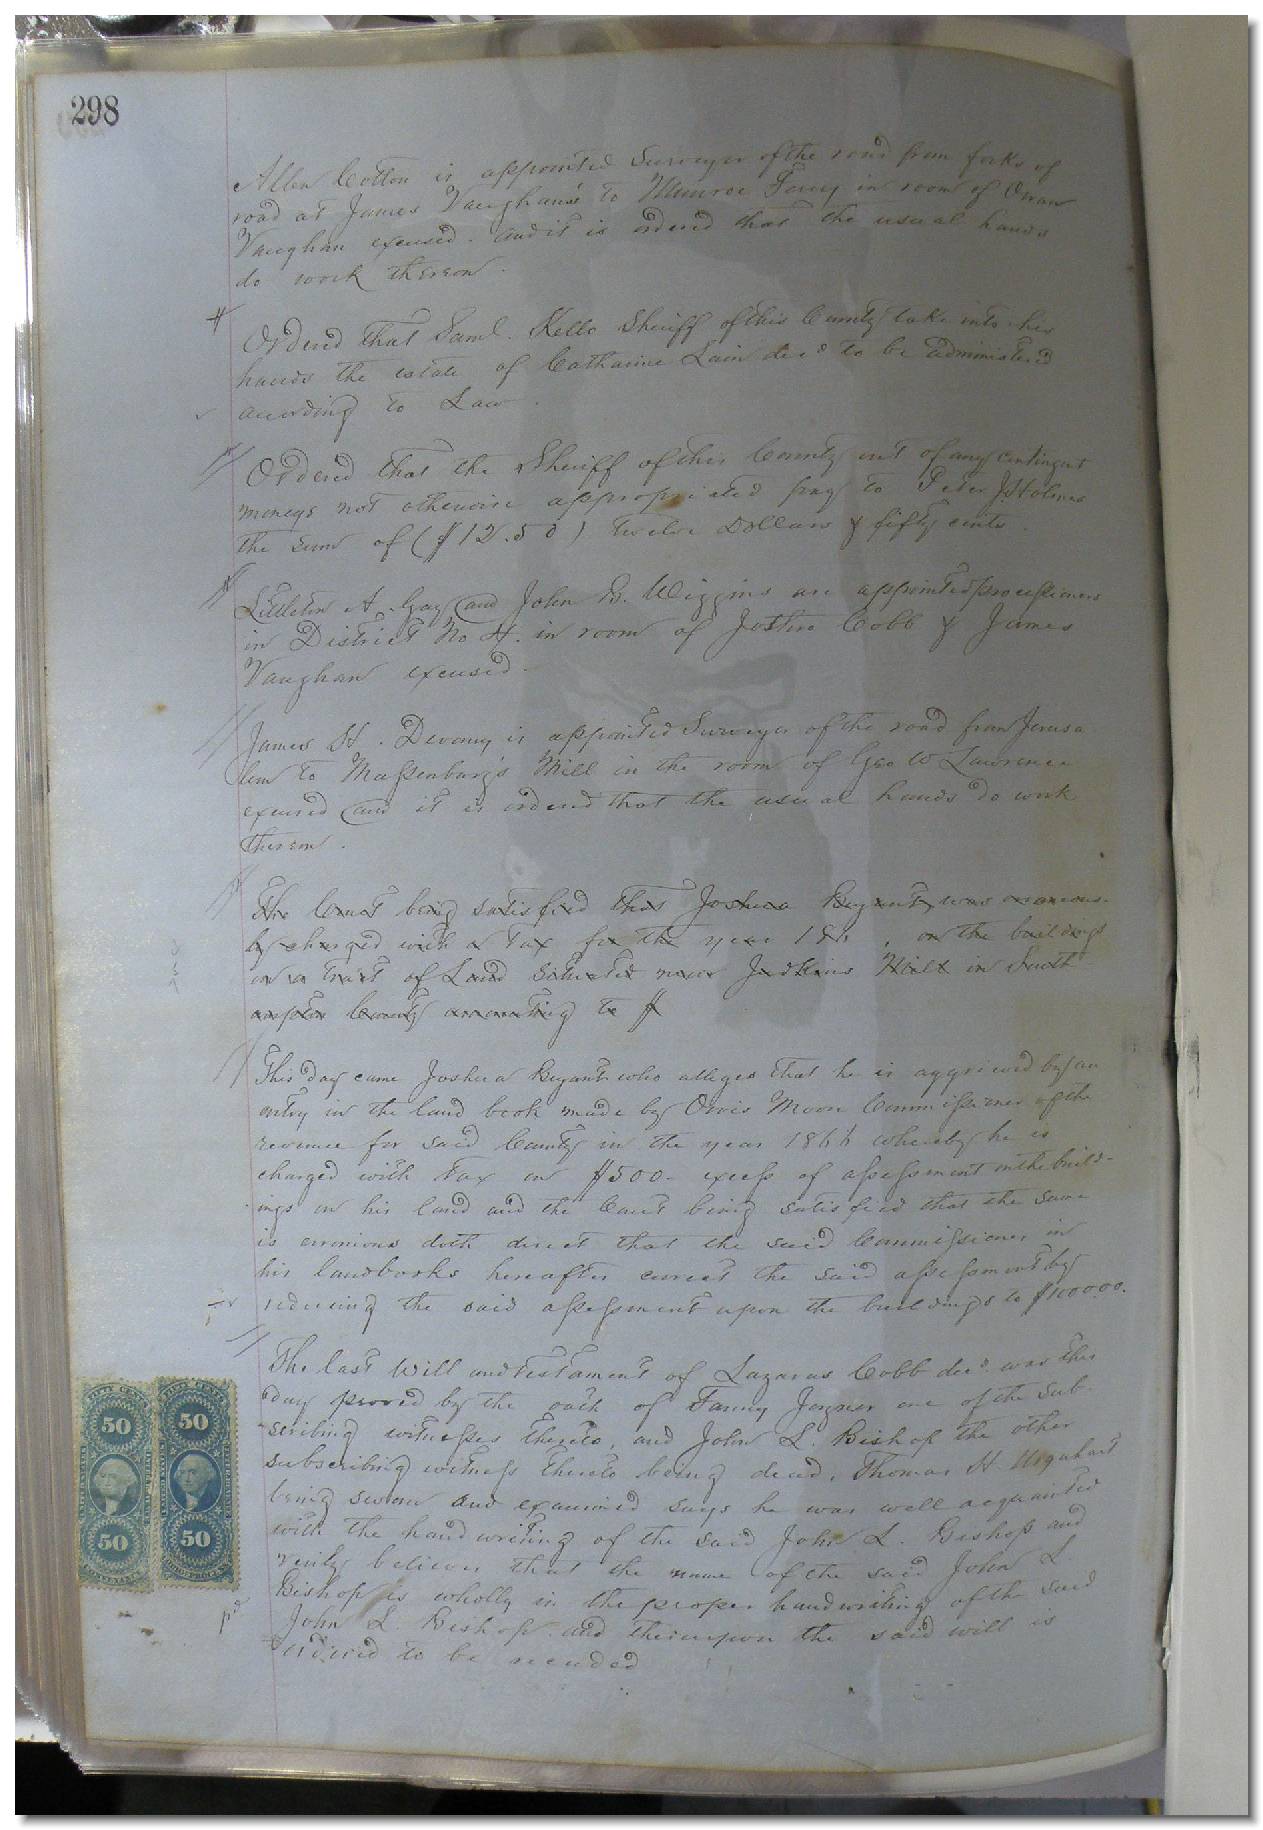 298
Allen Cotton is appointed Surveyor of the road from forks of
road at James Vaughan's to Monroe Ferry in room of
Vaughan excused. and it is ordered that the usual hands
do work thereon.
Ordered that Saml. Kello Sheriff of this County take into his
hands the estate of Catharine Lain decd to be administered
according to Law.
Ordered that the Sheriff of this County out of any contingent
moneys not otherwise appropriated pay to Peter J Holmes
the sum of ($12.50) twelve Dollars & fifty cents.
Littleton A. Gay and John B. Wiggins are appointed processioners
in District No 4. in room of Joshua Cobb & James
Vaughan excused.
James H. Devany is appointed Surveyor of the road from Jerusa
lem to Massenburg's Mill in the room of Geo W Lawrence
excused and it is ordered that the usual hands do work
thereon.
The Court being satisfied that Joshua Bryant was erroneous-
ly charged with a Tax for the year 186 , on the buildings
on a tract of Land situated near Judkins Mill in South
ampton County amounting to $
This day came Joshua Bryant who alleges that he is aggrieved by an
entry in the land book made by Orris Moore Commissioner of the
revenue for said County in the year 1866 whereby he is
charged with Tax on $500- excess of assessment on the build-
ings on his land and the Court being satisfied that the same
is erronious doth direct that the said Commissioner in
his landbooks hereafter correct the said assessment by
reducing the said assessment upon the buildings to $1000.00.
The last Will and testament of Lazarus Cobb decd. was this
day proved by the oath of Fanny Joyner one of the sub-
scribing witnesses thereto, and John L. Bishop the other
subscribing witness thereto being dead, Thomas H Urquhart
being sworn and examined says he was well acquainted
with the handwriting of the said John L. Bishop and
verily believes that the name of the said John L
Bishop is wholly in the proper handwriting of the said
John L. Bishop and thereupon the said will is
ordered to be recorded
50
50
50
50
pd